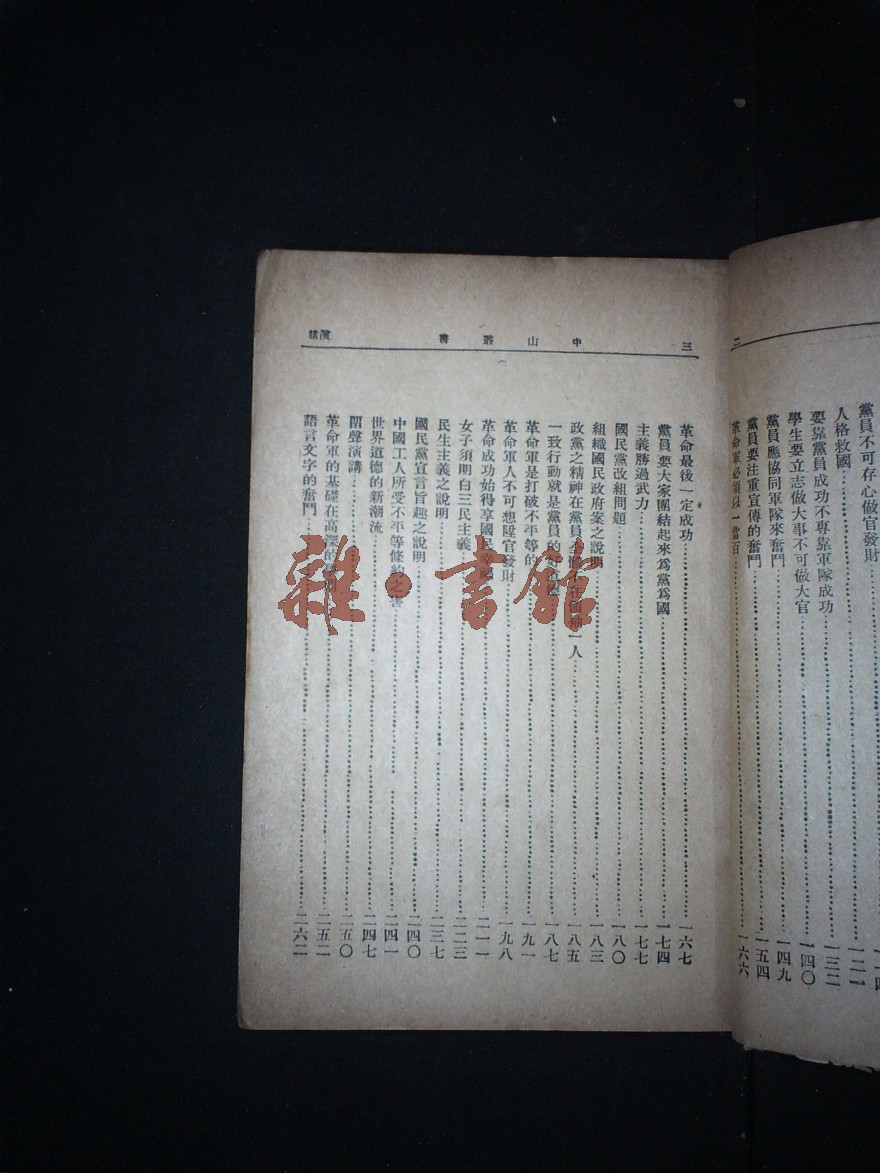 二
黨員不可存心做官發財
人格救國 一二一
要靠黨員成功不專靠軍隊成功 一三二
學生要立志做大事不可做大官 一四〇
黨員應協同軍隊來奮鬥 一四九
黨員要注重宣傳的奮鬥 一五四
革命軍必須以一當百 一六六
三 中山叢書 演講
革命最後一定成功 一六七
黨員要大家團結起來為黨為國 一七四
主義勝過武力 一七七
國民黨改組問題 一八〇
組織國民政府案之說明 一八三
政黨之精神在黨員全 一人 一八五
一致行動就是黨員的 一八七
革命軍是打破不平等的 一九一
革命軍人不可想陞官發財 一九八
革命成功始得享國民幸福 二一一
女子須明白三民主義 二二三
民生主義之說明 二三七
國民黨宣言旨趣之說明 二四〇
中國工人所受不平等條約之害 二四一
世界道德的新潮流 二四七
留聲演講 二五〇
革命軍的基礎在高深的 二五二
語言文字的奮鬥 二六二
雜·書館